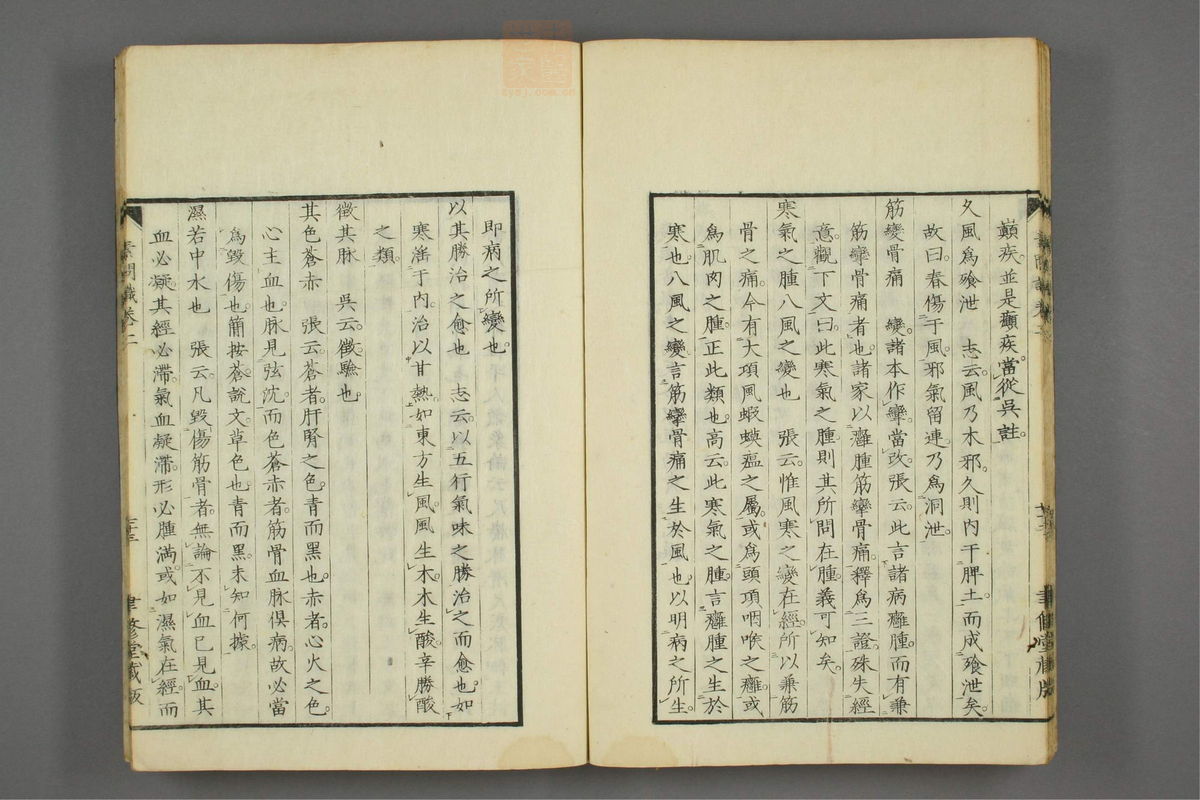 巔疾並是癲疾當從吳註
久風爲飱泄　志云風乃木邪久則內干脾土而成飱泄矣
故曰春傷于風邪氣留連乃爲洞泄
筋變骨痛　變諸本作攣當改張云此言諸病癰腫而有兼
筋攣骨痛者也諸家以癰腫筋攣骨痛釋爲三證殊失經
意觀下文曰此寒氣之腫則其所問在腫義可知矣
寒氣之腫八風之變也　張云惟風寒之變在經所以兼筋
骨之痛今有大項風蝦蟆瘟之屬或爲頭項咽喉之癰或
爲肌肉之腫正此類也高云此寒氣之腫言癰腫之生於
寒也八風之變言筋攣骨痛之生於風也以明病之所生
即病之所變也
以其勝治之愈也　志云以五行氣味之勝治之而愈也如
寒淫于內治以甘熱如東方生風風生木木生酸辛勝酸
之類
徵其脉　吳云徵驗也
其色蒼赤　張云蒼者肝腎之色青而黑也赤者心火之色
心主血也脉見弦沈而色蒼赤者筋骨血脉俱病故必當
爲毀傷也簡按蒼說文草色也青而黑未知何據
濕若中水也　張云凡毀傷筋骨者無論不見血已見血其
血必凝其經必滯氣血凝滯形必腫滿或如濕氣在經而
素問識卷二
聿修堂藏版